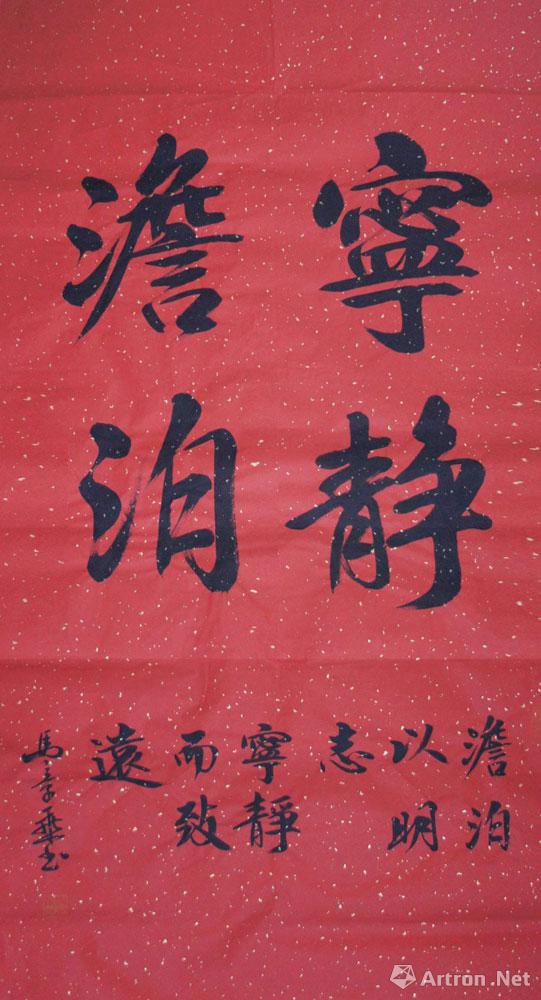 寧靜
澹泊
澹泊
以明
志
寧靜
而致
遠
馬章乘书
Artron.Net